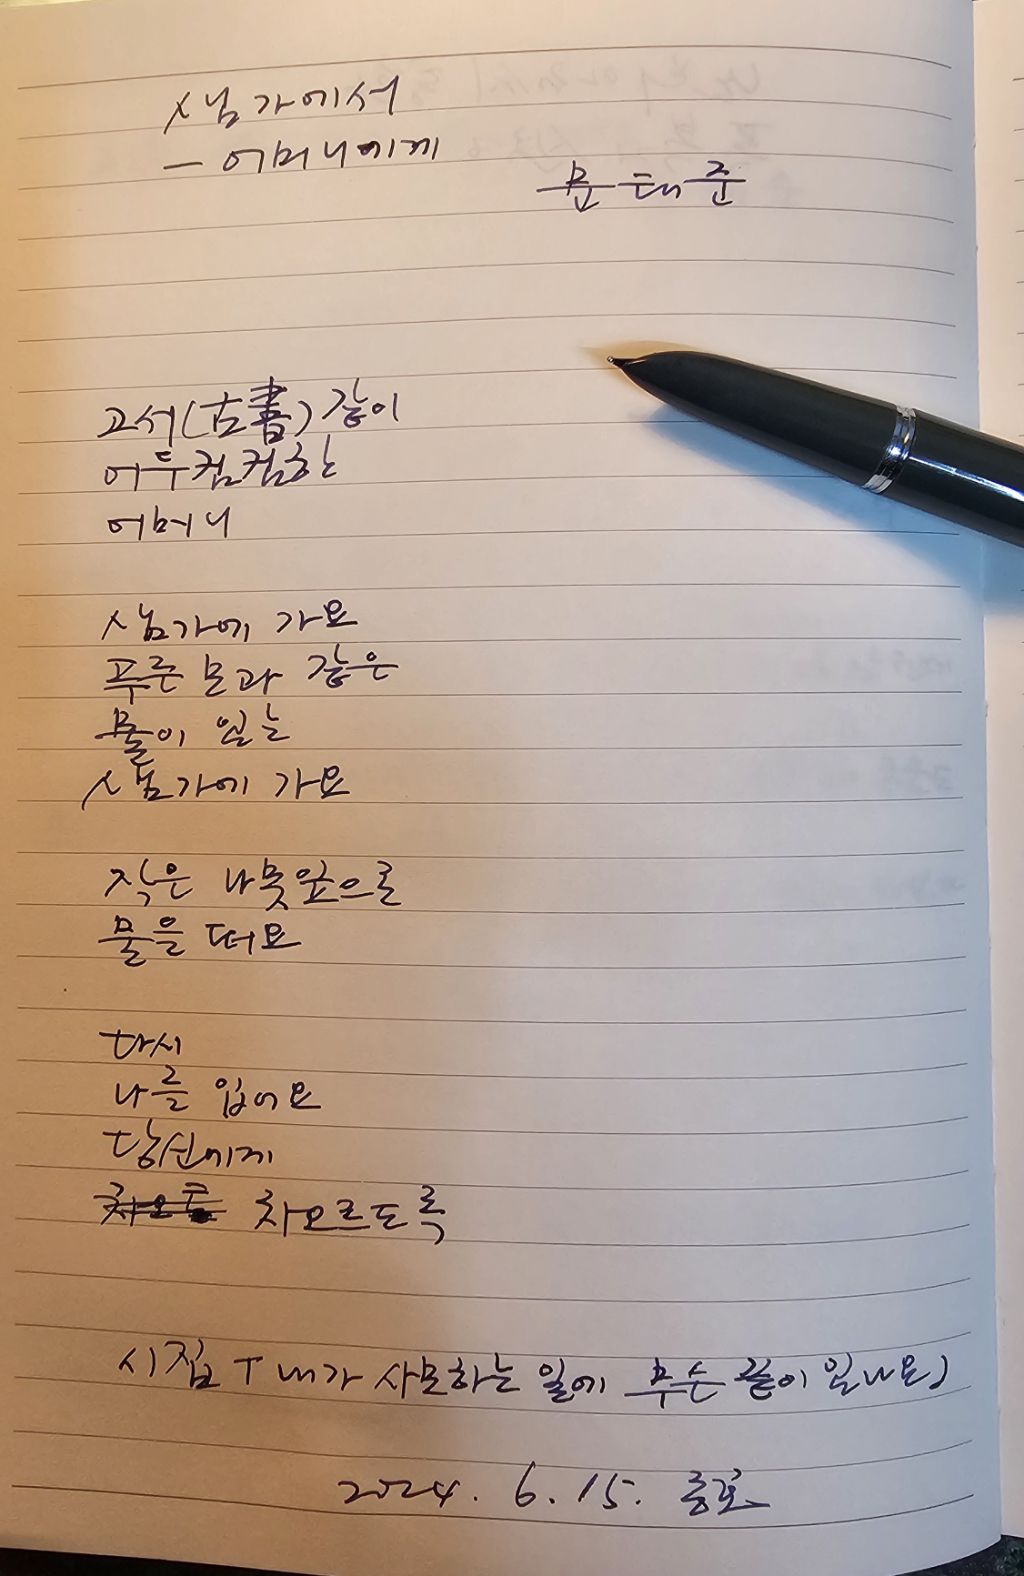 샘가에서
- 어머니에게
문태준
고서(古書) 같이
어두컴컴한
어머니
샘가에 가요
푸른 모과 같은
물이 있는
샘가에 가요
작은 나뭇잎으로
물을 떠요
다시
나를 입어요
당신에게
차오르도록
시집 「내가 사모하는 일에 무슨 끝이 있나요」
2024. 6. 15.